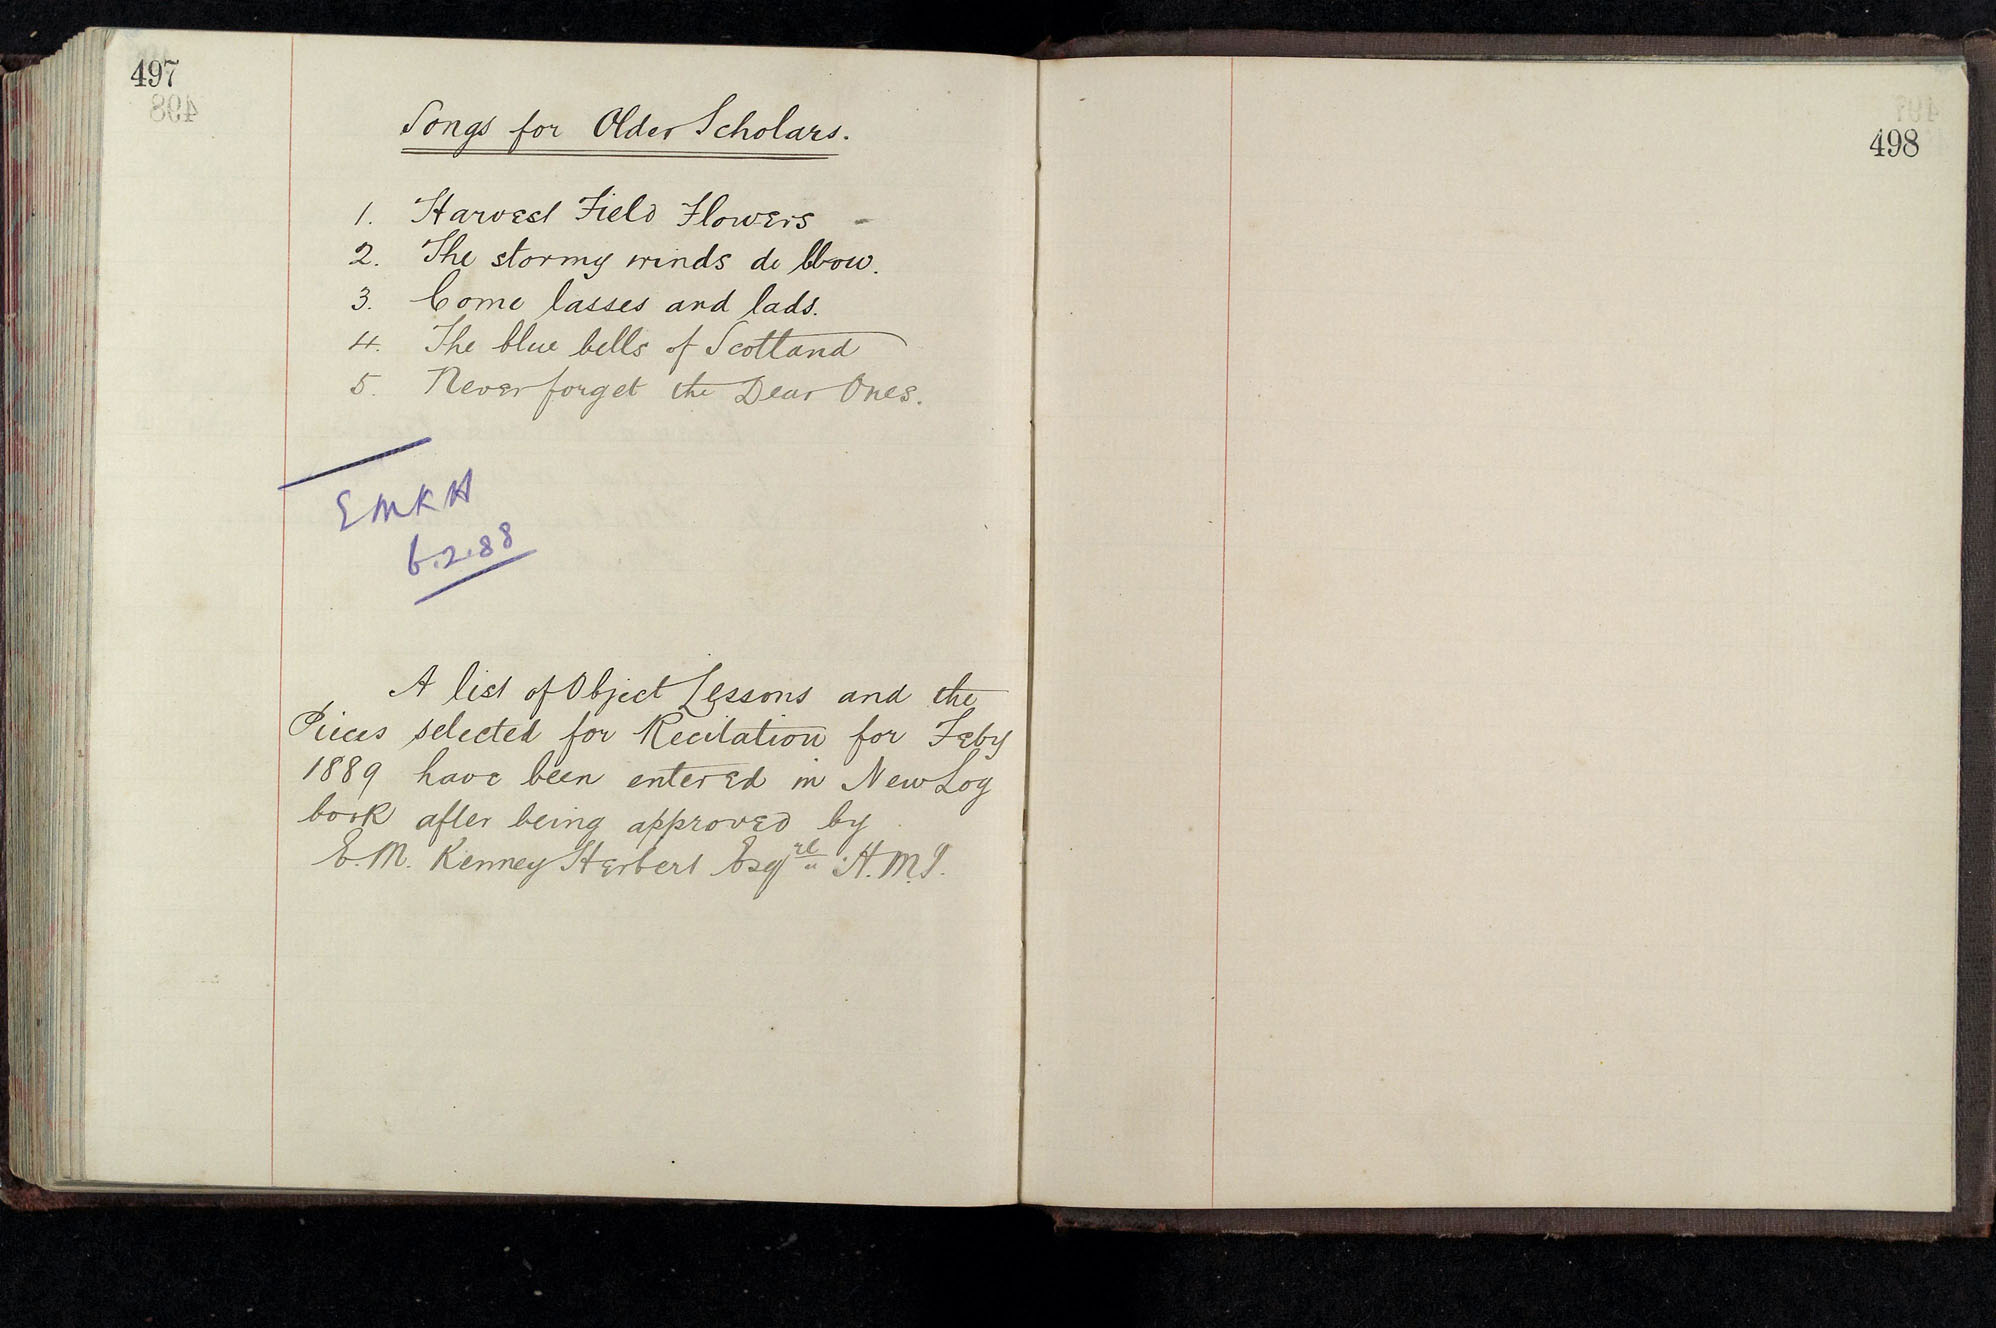 497
Songs for Older Scholars.
1. Harvest Field Flowers
2. The stormy winds do blow.
3. Come lasses and lads.
4. The blue bells of Scotland
5. Never forget the Dear Ones.
EMKH
6.2.88
A list of Object Lessons and the
Pieces selected for Recitation for Feby
1889 have been entered in New Log
book after being approved by
E. M. Kenney Herbert Esqre H.M.I.
498